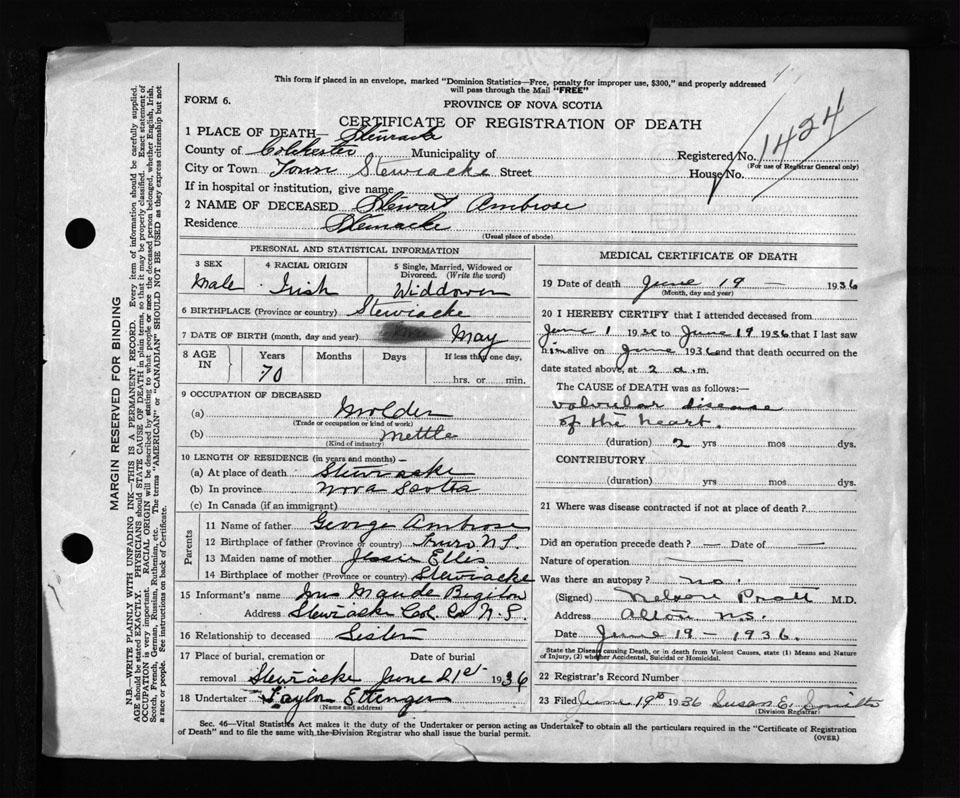 This form if placed in an envelope, marked "Dominion Statistics—Free, penalty for improper use, $300," and properly addressed
will pass through the Mail "FREE"
FORM 6.
PROVINCE OF NOVA SCOTIA
CERTIFICATE OF REGISTRATION OF DEATH
1424
1 PLACE OF DEATH— Stewiacke
County of Colchester Municipality of Registered No.
(For use of Registrar General only)
City or Town Town Stewiacke Street House No.
If in hospital or institution, give name
2 NAME OF DECEASED Stewart Ambrose
Residence Stewiacke
(Usual place of abode)
PERSONAL AND STATISTICAL INFORMATION
3 SEX 4 RACIAL ORIGIN 5 Single, Married, Widowed or
Divorced. (Write the word)
Male Irish Widdower
6 BIRTHPLACE (Province or country) Stewiacke
7 DATE OF BIRTH (month, day and year) May
8 AGE IN Years Months Days If less than one day,
70 hrs. or min.
9 OCCUPATION OF DECEASED
(a) Molder
(Trade or occupation or kind of work)
(b) Mettle
(Kind of industry)
10 LENGTH OF RESIDENCE (in years and months) —
(a) At place of death Stewiacke
(b) In province Nova Scotia
(c) In Canada (if an immigrant)
Parents
11 Name of father George Ambrose
12 Birthplace of father (Province or country) Truro N.S.
13 Maiden name of mother Jessie Ellis
14 Birthplace of mother (Province or country) Stewiacke
15 Informant's name Mrs Maude Bigelow
Address Stewiacke Col. Co N.S.
16 Relationship to deceased Sister
17 Place of burial, cremation or Date of burial
removal Stewiacke June 21st 1936
18 Undertaker Taylor Ettinger
(Name and address)
MEDICAL CERTIFICATE OF DEATH
19 Date of death June 19 — 1936
(Month, day and year)
20 I HEREBY CERTIFY that I attended deceased from
June 1 19 to June 19 1936 that I last saw
him alive on June 1936 and that death occurred on the
date stated above, at 2 a.m.
The CAUSE OF DEATH was as follows:—
valvular disease
of the heart.
(duration) 2 yrs mos dys.
CONTRIBUTORY
(duration) yrs mos dys.
21 Where was disease contracted if not at place of death?
Did an operation precede death? — Date of —
Nature of operation —
Was there an autopsy? no.
(Signed) Nelson Pratt M.D.
Address Alton N.S.
Date June 19 — 1936.
State the Disease causing Death, or in death from Violent Causes, state (1) Means and Nature
of Injury, (2) whether Accidental, Suicidal or Homicidal.
22 Registrar's Record Number
23 Filed June 19th 1936 Susan E. Smith
(Division Registrar)
Sec. 46—Vital Statistics Act makes it the duty of the Undertaker or person acting as Undertaker to obtain all the particulars required in the "Certificate of Registration
of Death" and to file the same with the Division Registrar who shall issue the burial permit.
(OVER)
MARGIN RESERVED FOR BINDING
N.B.—WRITE PLAINLY WITH UNFADING INK—THIS IS A PERMANENT RECORD. Every item of information should be carefully supplied.
AGE should be stated EXACTLY. PHYSICIANS should STATE CAUSE OF DEATH in plain terms, so that it may be properly classified. Exact statement of
OCCUPATION is very important. RACIAL ORIGIN will be described by stating to what people or race the deceased person belonged, whether English, Irish,
Scotch, French, German, Russian, Ruthenian, etc. The terms "AMERICAN" or "CANADIAN" SHOULD NOT BE USED as they express citizenship but not
a race or people. See instructions on back of Certificate.